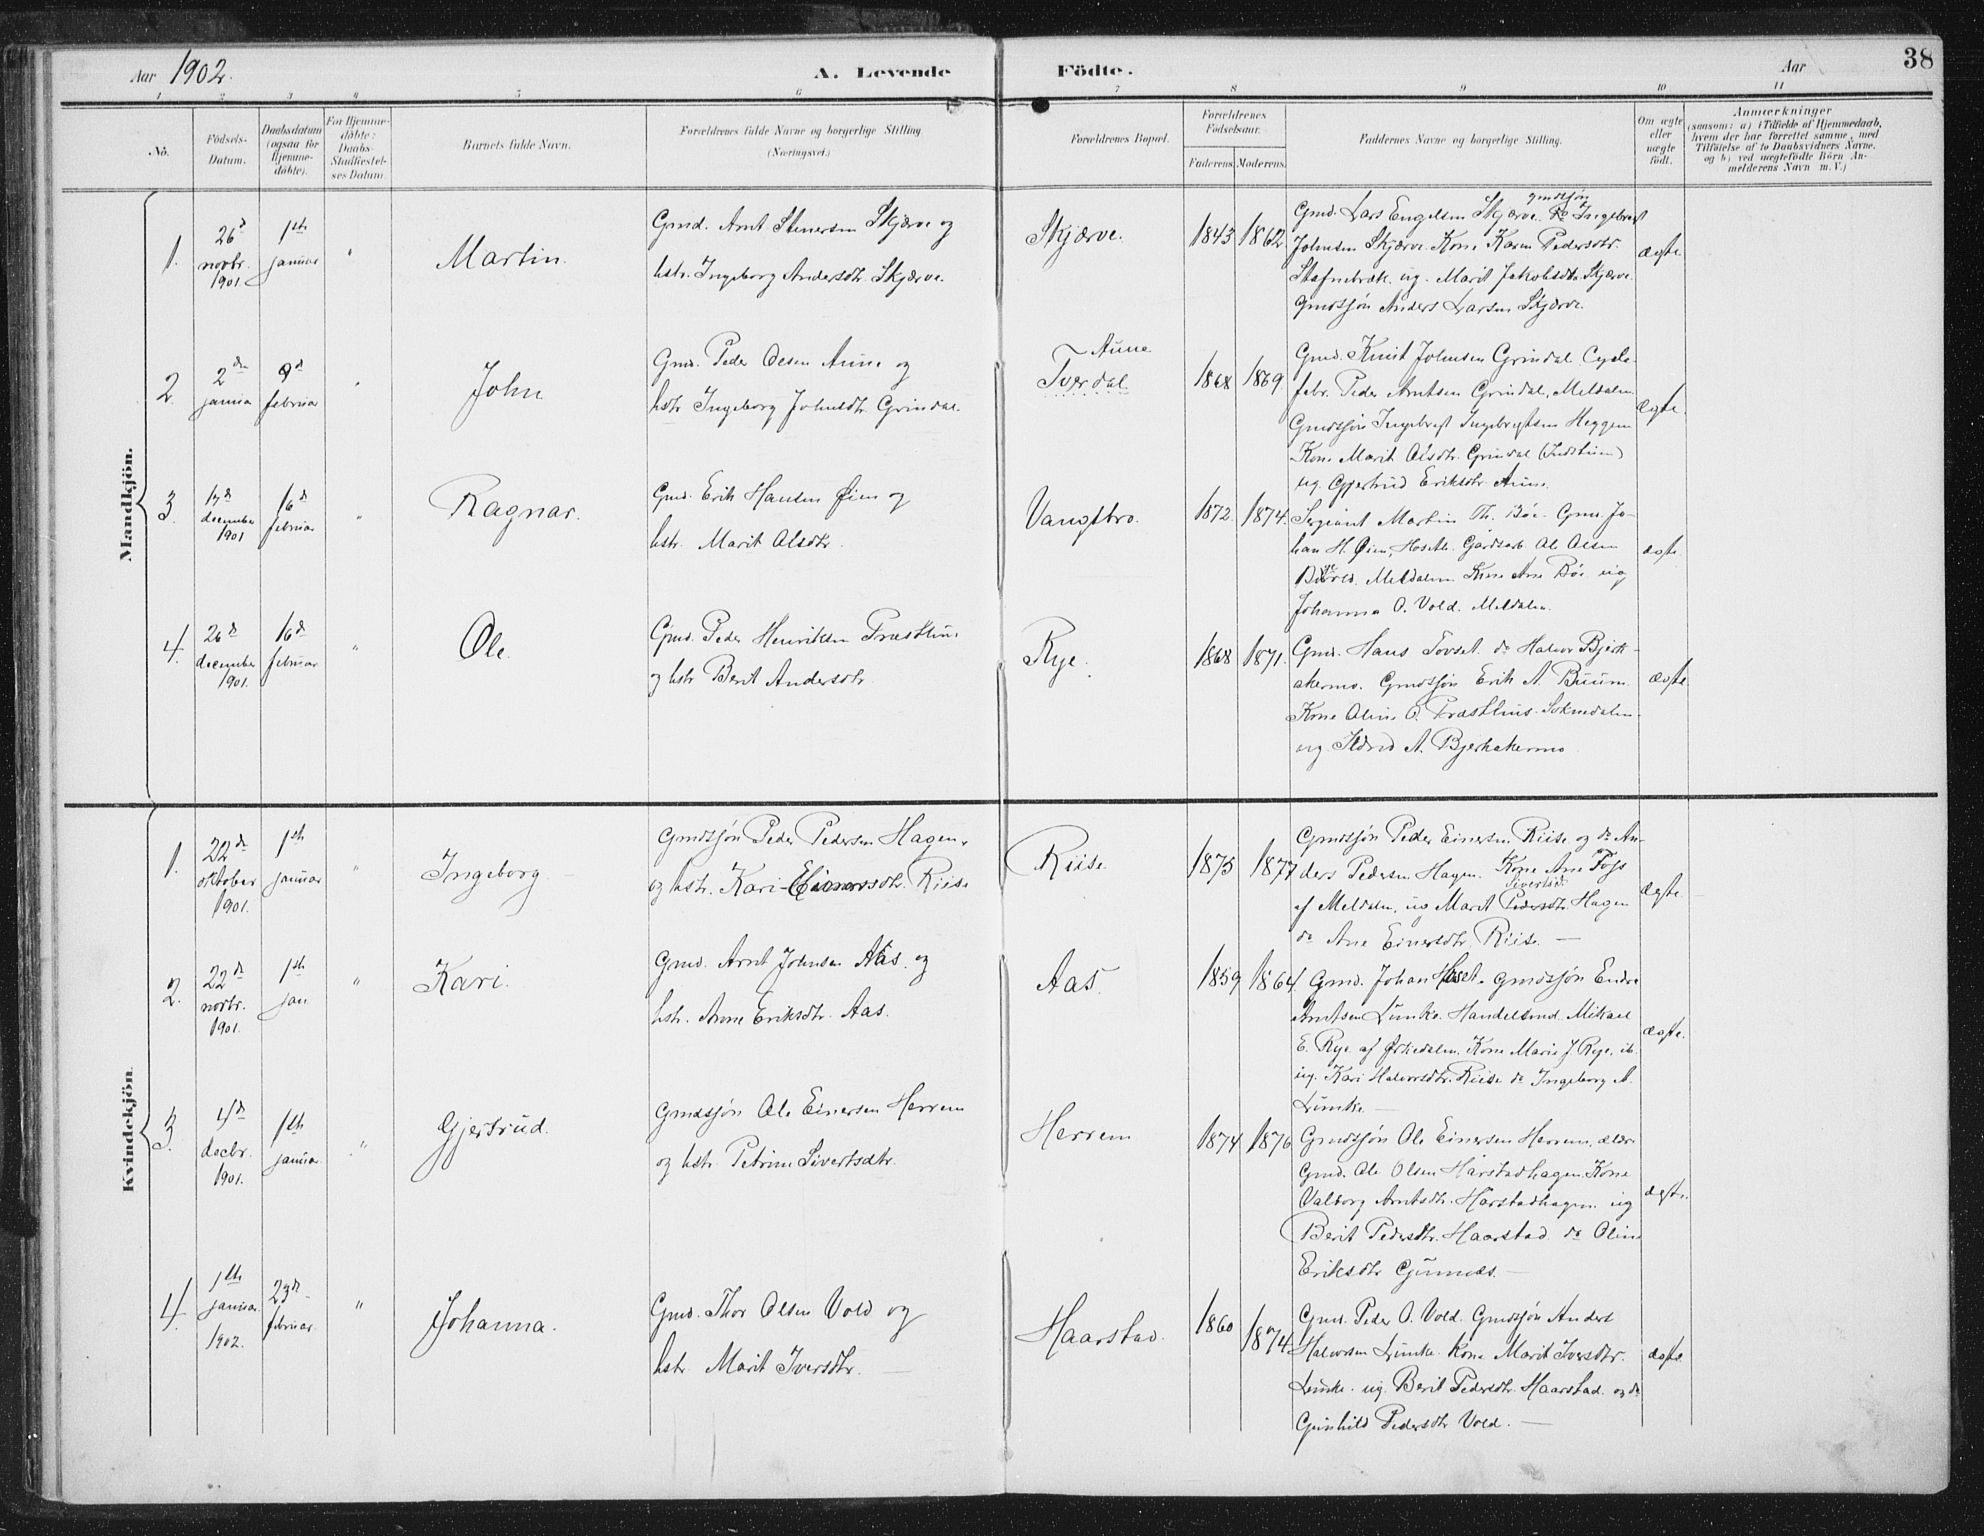 38
Aar 1902. A. Levende Födte. Aar
1 2 3 4 5 6 7 8 9 10 11
No.
Födsels-
Datum.
Daabsdatum
(ogsaa for
Hjemme-
döbte).
For Hjemme-
döbte:
Daabs-
Stadfæstel-
ses Datum.
Barnets fulde Navn.
Forældrenes fulde Navne og borgerlige Stilling.
(Næringsvei.)
Forældrenes Bopæl.
Forældrenes
Födselsaar.
Faderens. Moderens.
Faddernes Navne og borgerlige Stilling.
Om ægte
eller
uægte
födt.
Anmærkninger
(saasom: a) i Tilfælde af Hjemmedaab,
hvem der har forrettet samme, med
Tilföielse af to Daabsvidners Navne,
og b) ved uægtefödte Börn An-
melderens Navn m. V.)
Mandkjön.
1.
26d
novbr.
1901
1ste
januar
"
Martin.
Gmd. Arnt Stenersen Skjærve og
hstr. Ingeborg Andersdtr. Skjærve.
Skjærve.
1843 1862
Gmd. Lars Engelsen Skjærve. gmdsjön Ingebrigt
Johnsen Skjærve. Kone Karen Pedersdtr.
Stafnebræk. ug. Marit Jakobsdtr. Skjærve
gmdsjön Anders Larsen Skjærve.
ægte
2.
2den
janua
9d
februar
"
John
Gmd. Peder Olsen Aune og
hstr. Ingeborg Johnsdtr. Grindal.
Aune
Tverdal.
1868 1869
Gmd. Knut Johnsen Grindal
Peder Arntsen Grindal, Meldalen
Gmdsjön Ingebrigt Ingebrigtsen Heggem
Kone Marit Olsdtr. Grindal
ug. Gjertrud Eriksdtr. Aune.
ægte.
3.
17d
december
1901
16d
februar
"
Ragnar.
Gmd. Erik Hansen Øien og
hstr. Marit Olsdtr.
Vangsbro.
1872. 1874.
Sergiant Martin Th. Böe. Gmd. Jo-
han H. Øien, Gardsarb. Ole Olsen
Meldalen Kone Ane Böe ug
Johanna O. Vold. Meldalen.
ægte.
4.
26d
december
1901.
16d
februar
"
Ole.
Gmd. Peder Henriksen Præsthus
og hstr. Berit Andersdtr.
Rye.
1868 1871.
Gmd. Hans Tovset. do Halvor Bjerk-
akermo. Gmdsjön Erik A. Buum
Kone Oline O. Præsthus. Soknedalen.
ug A. Bjerkakermo
ægte.
Kvindekjön.
1.
22de
oktober
1901.
1ste
januar
"
Ingeborg.
Gmdsjön Peder Pedersen Hagen.
og hstr. Kari Einarsdtr. Riise
Riise.
1875 1877
Gmdsjön Peder Einersen Riise og do An-
ders Pedersen Hagen. Kone Ane Foss
Sivertsdtr.
af Meldalen, ug Marit Pedersdtr. Hagen
do Ane Einersdtr. Riise.
ægte.
2.
22de
novbr.
1901.
1ste
jan
"
Kari.
Gmd. Arnt Johnsen Aas. og
hstr. Anne Eriksdtr. Aas.
Aas.
1859 1864
Gmd. Johan Hoset. gmdsjön Endre
Arntsen Lunke. Handelsmd. Mikael
E. Rye. af Ørkedalen. Kone Marie J. Rye. ib.
ug. Kari Halvorsdtr. Riise do Ingeborg A.
Lunke.
ægte.
3.
4d
decbr.
1901.
1ste
januar.
"
Gjertrud.
Gmdsjön Ole Einersen Herrem
og hstr. Petrine Sivertsdtr.
Herrem
1874 1876
Gmdsjön Ole Einersen Herrem, ældr.
Gmd. Ole Olsen Harstadhagen. Kone
Valborg Arntsdtr. Harstadhagen. ug
Berit Pedersdtr. Haarstad. do Oline
Eriksdtr Gunnæs.
ægte.
4.
1ste
januar.
1902.
23de
februar.
"
Johanna.
Gmd. Thor Olsen Vold og
hstr. Marit Iversdtr.
Haarstad.
1860 1874
Gmd. Peder O. Vold. Gmdsjön Anders
Halvorsen Lunke. Kone Marit Iversdtr.
Lunke. ug. Berit Pedersdtr. Haarstad. og do
Gunhild Pedersdtr Vold.
ægte